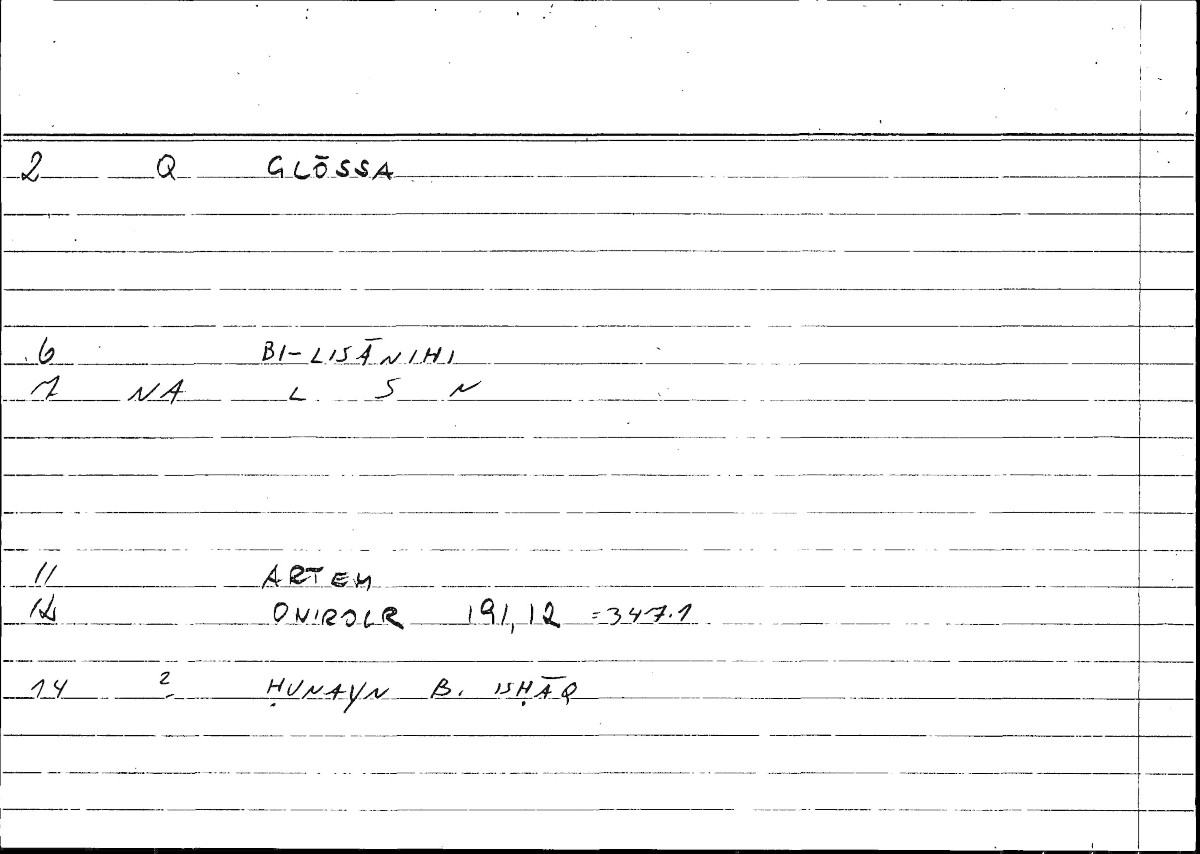 2 Q GLŌSSA
6 BI-LISĀNIHI
7 NA L S N
11 ARTEM
12 ONIROCR 191,12 =347.1
14 2 ḤUNAYN B. ISḤĀQ